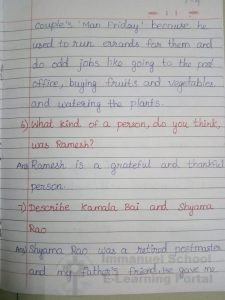 couple's 'Man Friday' because he
used to run errands for them and
do odd jobs like going to the post
office, buying fruits and vegetables
and watering the plants.
6) What kind of a person, do you think,
was Ramesh?
Ans) Ramesh is a grateful and thankful
person.
7) Describe Kamala Bai and Shyama
Rao
Ans) Shyama Rao was a retired postmaster
and my father's friend. He gave me
Immanuel School
E-Learning Portal